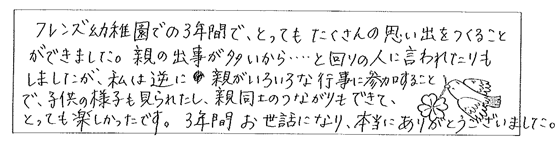 フレンズ幼稚園での3年間で、とっても たくさんの思い出をつくること
ができました。親の出事が多いから‥‥と回りの人に言われたりも
しましたが、私は逆に 親がいろいろな行事に参加すること
で、子供の様子も見られたし、親同士のつながりもできて、
とっても楽しかったです。 3年間 お世話になり、本当にありがとうございました。